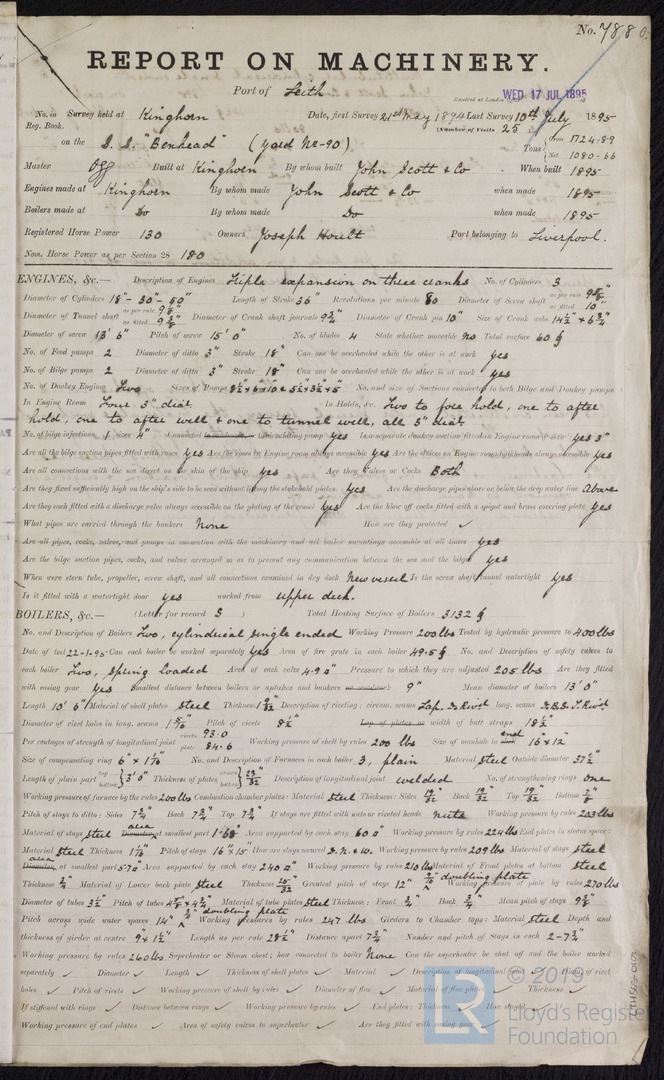 No. 7880.
REPORT ON MACHINERY.
Port of Leith
Received at London WED. 17 JUL 1895
No. in Survey held at Kinghorn Date, first Survey 21st May 1894 Last Survey 10th July 1895
Reg. Book. (Number of Visits 25
on the S.S. "Benhead" (Yard No-90) Tons Gross 1724.89 Net 1080.66
Master Built at Kinghorn By whom built John Scott & Co. When built 1895
Engines made at Kinghorn By whom made John Scott & Co when made 1895
Boilers made at Do By whom made Do when made 1895
Registered Horse Power 130 Owners Joseph Hoult Port belonging to Liverpool.
Nom. Horse Power as per Section 28 180
ENGINES, &c.— Description of Engines Triple expansion on three cranks No. of Cylinders 3
Diameter of Cylinders 18"-30"-50" Length of Stroke 36" Revolutions per minute 80 Diameter of Screw shaft as per rule as fitted 10"
Diameter of Tunnel shaft as per rule as fitted Diameter of Crank shaft journals 9 3/4" Diameter of Crank pin 10" Size of Crank webs 14 1/2" x 6 3/4"
Diameter of screw 13' 6" Pitch of screw 15' 0" No. of blades 4 State whether moveable No Total surface 60 ⌀
No. of Feed pumps 2 Diameter of ditto 3" Stroke 18" Can one be overhauled while the other is at work yes
No. of Bilge pumps 2 Diameter of ditto 3" Stroke 18" Can one be overhauled while the other is at work yes
No. of Donkey Engines Two Sizes of Pumps No. and size of Suctions connected to both Bilge and Donkey pumps
In Engine Room Four 3" diat. In Holds, &c. Two to fore hold, one to after
hold, one to after well & one to tunnel well, all 3" diat
No. of bilge injections 1 sizes 4" Connected to circulating pump yes Is a separate donkey suction fitted in Engine room & size yes 3"
Are all the bilge suction pipes fitted with roses yes Are the roses in Engine room always accessible yes Are the sluices on Engine room bulkheads always accessible yes
Are all connections with the sea direct on the skin of the ship yes Are they Valves or Cocks Both
Are they fixed sufficiently high on the ship's side to be seen without lifting the stokehold plates yes Are the discharge pipes above or below the deep water line Above
Are they each fitted with a discharge valve always accessible on the plating of the vessel yes Are the blow off cocks fitted with a spigot and brass covering plate yes
What pipes are carried through the bunkers None How are they protected ✓
Are all pipes, cocks, valves, and pumps in connection with the machinery and all boiler mountings accessible at all times yes
Are the bilge suction pipes, cocks, and valves arranged so as to prevent any communication between the sea and the bilges yes
When were stern tube, propeller, screw shaft, and all connections examined in dry dock New vessel Is the screw shaft tunnel watertight yes
Is it fitted with a watertight door yes worked from upper deck.
BOILERS, &c.— (Letter for record S ) Total Heating Surface of Boilers 3132 ⌀
No. and Description of Boilers Two, cylindrical single ended Working Pressure 200 lbs Tested by hydraulic pressure to 400 lbs
Date of test 22-1-95 Can each boiler be worked separately yes Area of fire grate in each boiler 49.5 ⌀ No. and Description of safety valves to
each boiler Two, Spring loaded Area of each valve 4.9 □" Pressure to which they are adjusted 205 lbs Are they fitted
with easing gear yes Smallest distance between boilers or uptakes and bunkers or woodwork 9" Mean diameter of boilers 13' 0"
Length 10' 6" Material of shell plates Steel Thickness 1 9/32" Description of riveting: circum. seams Lap. D. Rivd long. seams D.B.S. T. Rivd
Diameter of rivet holes in long. seams 1 5/16" Pitch of rivets 8 1/2" Lap of plates or width of butt straps 18 1/2"
Per centages of strength of longitudinal joint rivets 93.0 plate 84.6 Working pressure of shell by rules 200 lbs Size of manhole in end 16" x 12"
Size of compensating ring 6" x 1 7/16" No. and Description of Furnaces in each boiler 3, plain Material Steel Outside diameter 37 1/2"
Length of plain part top bottom 3' 0" Thickness of plates crown bottom 23/32" Description of longitudinal joint welded No. of strengthening rings one
Working pressure of furnace by the rules 200 lbs Combustion chamber plates: Material Steel Thickness: Sides 19/32" Back 19/32" Top 19/32" Bottom 7/8"
Pitch of stays to ditto: Sides 7 3/4" Back 7 3/4" Top 7 3/4" If stays are fitted with nuts or riveted heads Nuts Working pressure by rules 203 lbs
Material of stays Steel area at smallest part 1.68" Area supported by each stay 60 □" Working pressure by rules 224 lbs End plates in steam space:
Material Steel Thickness Pitch of stays 16" x 15" How are stays secured D.N. & W. Working pressure by rules 209 lbs Material of stays Steel
area at smallest part Area supported by each stay 240 □" Working pressure by rules 210 lbs Material of Front plates at bottom Steel
Thickness 3/4" Material of Lower back plate Steel Thickness 25/32" Greatest pitch of stays 12" doubling plate Working pressure of plate by rules 270 lbs
Diameter of tubes 3 1/2" Pitch of tubes Material of tube plates Steel Thickness: Front 3/4" Back 3/4" Mean pitch of stays
Pitch across wide water spaces 14" doubling plate Working pressures by rules 247 lbs Girders to Chamber tops: Material Steel Depth and
thickness of girder at centre 9" x 1 1/2" Length as per rule 28 1/2" Distance apart 7 3/4" Number and pitch of Stays in each 2-7 3/4"
Working pressure by rules 260 lbs Superheater or Steam chest; how connected to boiler None Can the superheater be shut off and the boiler worked
separately ✓ Diameter ✓ Length ✓ Thickness of shell plates ✓ Material ✓ Description of longitudinal joint ✓ Diam. of rivet
holes ✓ Pitch of rivets ✓ Working pressure of shell by rules ✓ Diameter of flue ✓ Material of flue plates ✓ Thickness ✓
If stiffened with rings ✓ Distance between rings ✓ Working pressure by rules ✓ End plates: Thickness ✓ How stayed ✓
Working pressure of end plates ✓ Area of safety valves to superheater ✓ Are they fitted with easing gear ✓
© 2019
LR
Lloyd's Register
Foundation